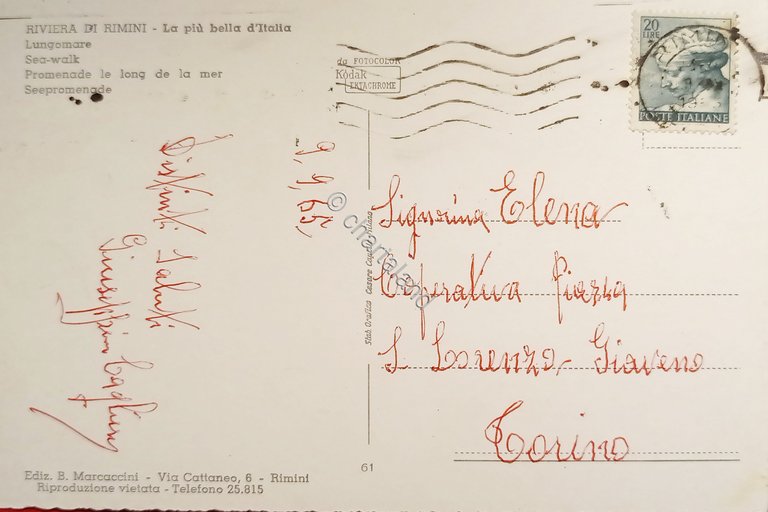 RIVIERA DI RIMINI - La più bella d'Italia
Lungomare
Sea-walk
Promenade le long de la mer
Seepromenade
da FOTOCOLOR
Kodak
EKTACHROME
20
LIRE
POSTE ITALIANE
9, 9, 65,
Distinti Saluti
Giuseppin
Signorina Elena
Coperativa Piazza
S. Lorenzo Giaveno
Torino
Stab. Grafico Cesare Milano
© chartaland
61
Ediz. B. Marcaccini - Via Cattaneo, 6 - Rimini
Riproduzione vietata - Telefono 25.815